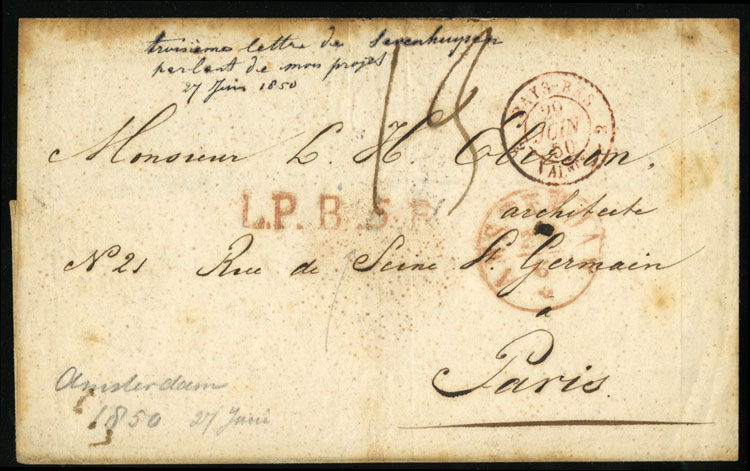 troisième lettre de Sevenhuysen
parlant de mon projet
27 Juin 1850
18
PAYS-BAS
29
JUIN
50
VALnes
3
Monsieur L. H.
architecte
L.P.B.5.R
AMSTERDAM
N 21 Rue de Seine St. Germain
a
Paris.
Amsterdam
1850 27 Juni